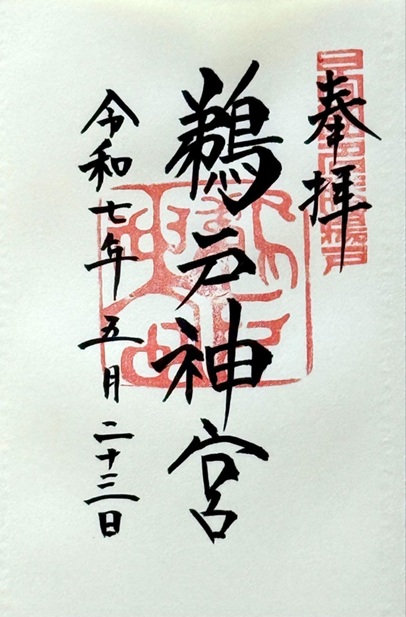 奉拝
鵜戸神宮
令和七年 五月二十三日